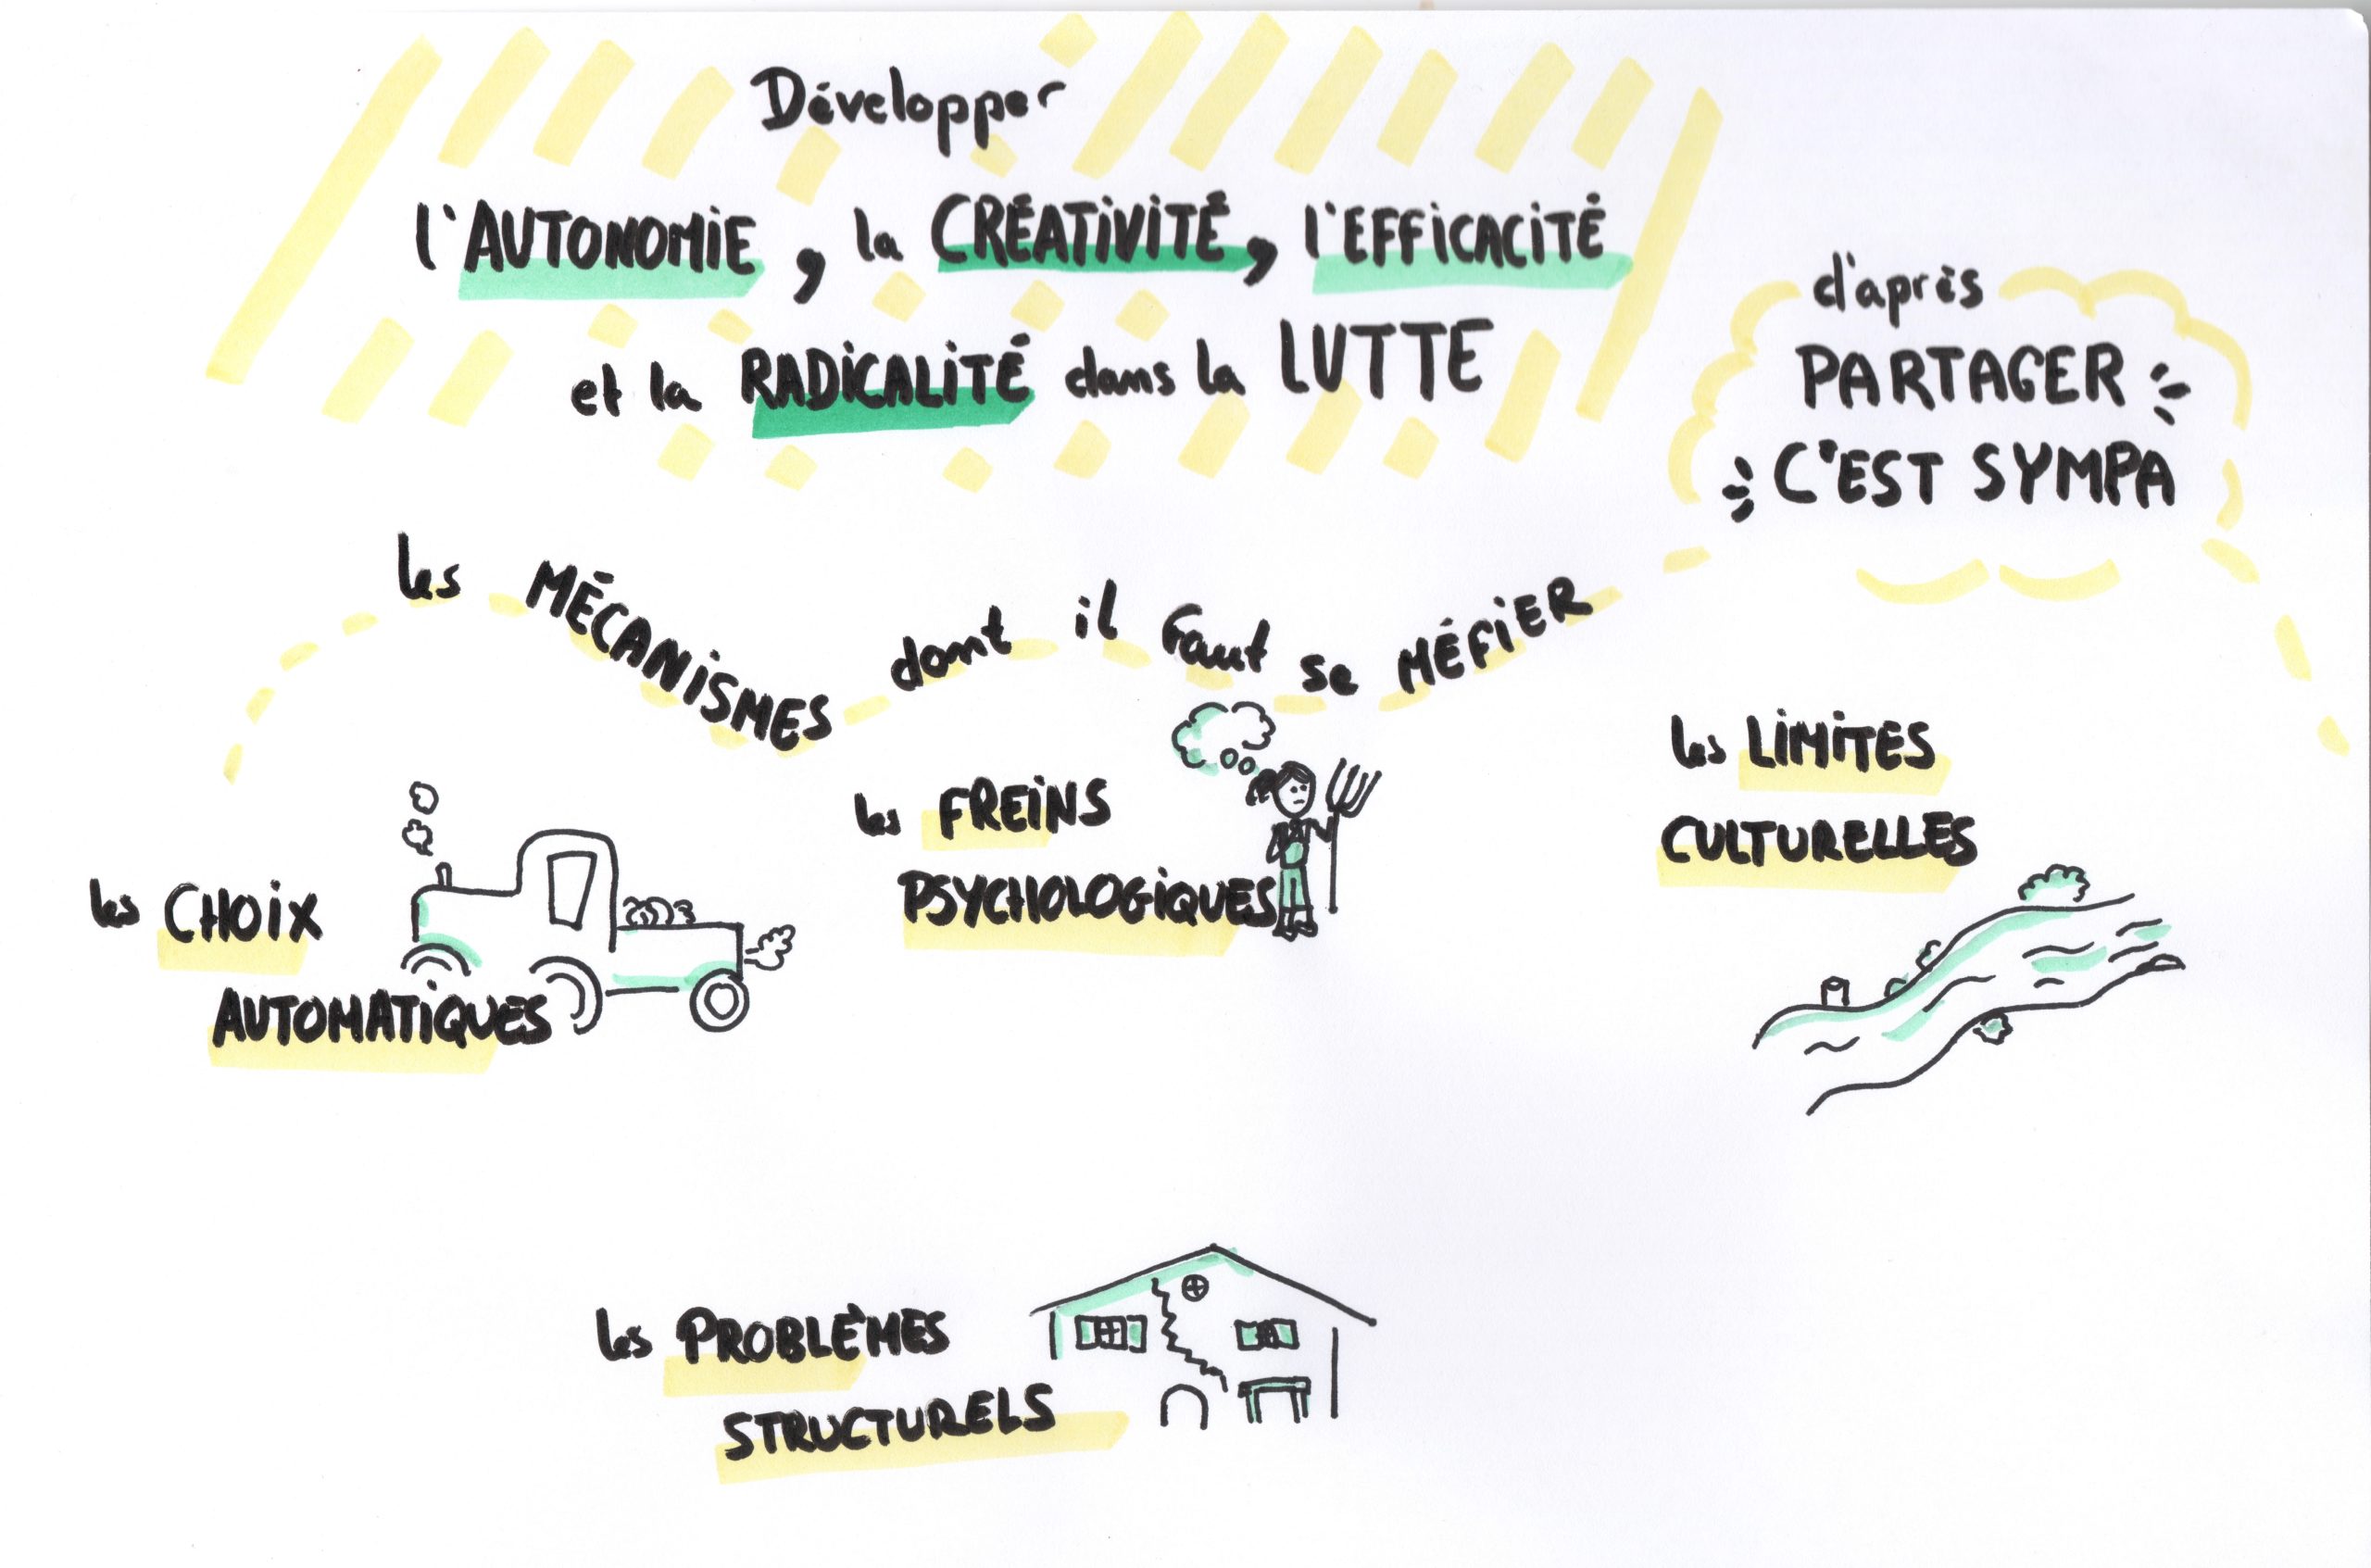 Développer
l'AUTONOMIE, la CRÉATIVITÉ, l'EFFICACITÉ
et la RADICALITÉ dans la LUTTE
d'après
PARTAGER
C'EST SYMPA
les MÉCANISMES dont il faut se MÉFIER
les CHOIX
AUTOMATIQUES
les FREINS
PSYCHOLOGIQUES
les LIMITES
CULTURELLES
les PROBLÈMES
STRUCTURELS